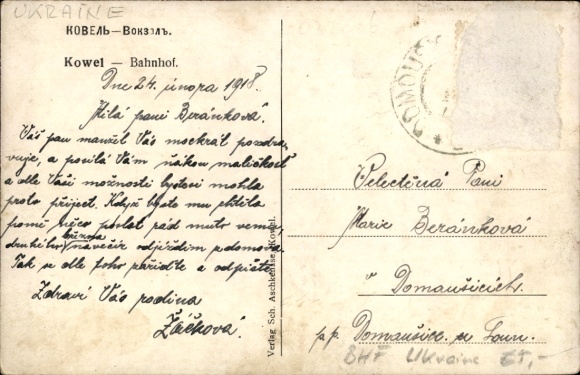 UKRAINE
КОВЕЛЬ — Вокзалъ.
Kowel — Bahnhof.
Dne 24. února 1918.
Milá paní Beránková.
Váš pan manžel Vás mockrát pozdra-
vuje, a posílá Vám ňákou maličkost
a dle Vaší možnosti bysteni mohla
proto přiject. Když byste mu chtěla
poslat rád mu to vemu,
druhého března navečír odjíždím z domova.
Tak se dle toho zařiďte a odpište
Zdraví Vás rodina
Žáčková.
Verlag Sch. Aschkenase, Kowel.
DOMOUŠ
Velectěná Paní
Marie Beránková
v
Domaušicích.
p.p. Domaušic. u Loun.
BHF Ukraine